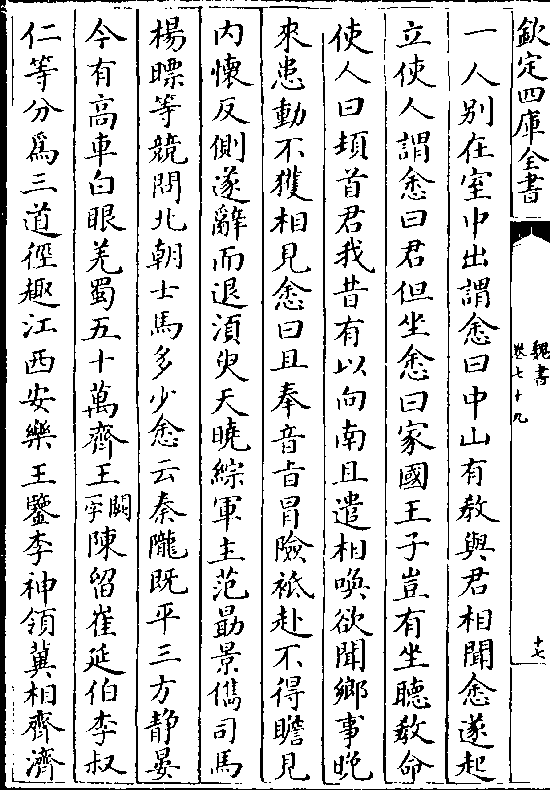 欽定四庫全書
魏書
卷七十九
十七
一人別在室中出謂悆曰中山有敎與君相聞悆遂起
立使人謂悆曰君但坐悆曰家國王子豈有坐聽敎命
使人曰頃首君我昔有以向南且遣相喚欲聞鄉事晚
來患動不獲相見悆曰且奉音旨冒險祗赴不得瞻見
内懷反側遂辭而退須臾天曉綜軍主范勗景儁司馬
楊㬓等競問北朝士馬多少悆云秦隴既平三方静晏
今有高車白眼羌蜀五十萬齊王闕一字陳留崔延伯李叔
仁等分爲三道徑趣江西安樂王鑒李神領冀相齊濟